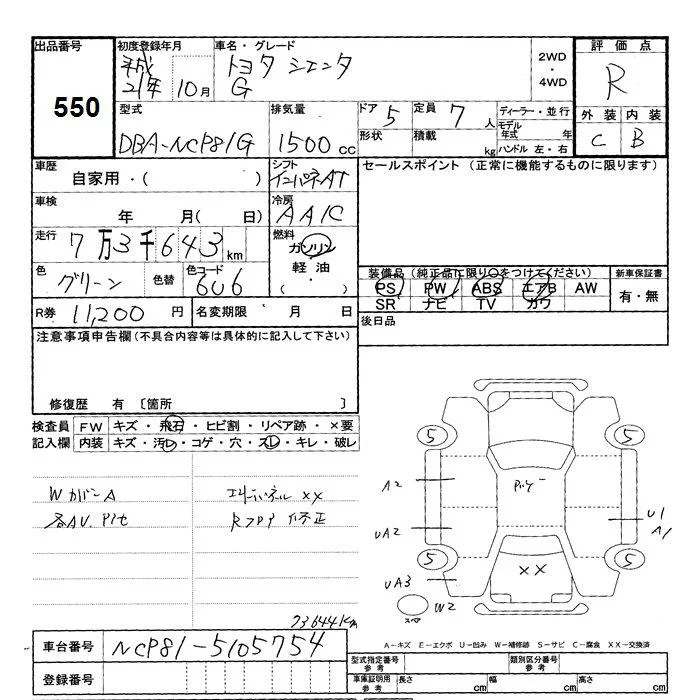 出品番号
550
初度登録年月
平成
21年 10月
車名・グレード
トヨタ シエンタ
G
2WD
・
4WD
評価点
R
外装 内装
C B
型式
DBA-NCP81G
排気量
1500 cc
ドア 5
定員 7 人
形状
積載 kg
ディーラー・並行
モデル年式 年
ハンドル 左・右
車歴
自家用・( )
シフト
インパネAT
セールスポイント (正常に機能するものに限ります)
車検
年 月( 日)
冷房
AAC
走行
7万3千643km
燃料
ガソリン
軽油
( ・ )
色
グリーン
色替
色コード
6U6
装備品(純正品に限り○をつけてください)
PS PW ABS エアB AW
SR ナビ TV カワ
新車保証書
有・無
R券 11,200 円
名変期限 月 日
後日品
注意事項申告欄(不具合内容等は具体的に記入して下さい)
修復歴 有 [箇所 ]
検査員
記入欄
FW キズ・飛石・ヒビ割・リペア跡・×要
内装 キズ・汚レ・コゲ・穴・スレ・キレ・破レ
WカバーA
各AU. Pit
XX
Rフロア 修正
73644Km
5
5
5
5
A2
UA2
UA3
W2
スペア
XX
U1
A1
車台番号 NCP81-5105754
登録番号
A-キズ E-エクボ U-凹み W-補修跡 S-サビ C-腐食 XX-交換済
型式指定番号
参考
類別区分番号
参考
車庫証明用
参考
長さ cm 幅 cm 高さ cm